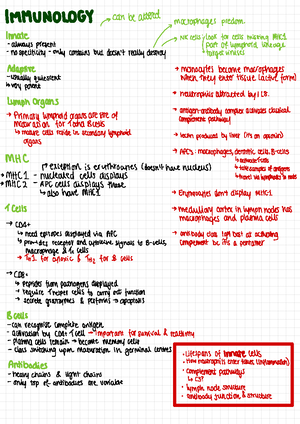 IMMUNOLOGY
can be altered
Innate
- always present
- no specificity - only contains but doesn't really destroy
Adaptive
- usually quiescent
↳ very potent
Lymph Organs
→ Primary lymphoid organs are site of
maturation for T and B cells
↳ mature cells reside in secondary lymphoid
organs
MHC
exception is erythrocytes (doesn't have nucleus)
→ MHC 1 - nucleated cells displays
→ MHC 2 - APC cells displays these
↳ also have MHC1
T Cells
→ CD4+
↳ need epitopes displayed via APC
↳ provides receptor and cytokine signals to B-cells,
macrophage & Tc cells
→ CD8+
↳ Peptides from pathogens displayed
↳ require T helper cells to carry out function
↳ secrete granzymes & perforins → apoptosis
B cells
- can recognise complete antigen
- activation by CD4+ T cell → important for survival &
- Plasma cells remain → become memory cells
- class switching upon maturation in germinal centres
Antibodies
- heavy chains & light chains
- only top of antibodies are variable
macrophages
- NK cells
look for cells missing MHC1
part of lymphoid lineage
target viruses
→ monocytes become macrophages
when they enter tissue (active form)
→ neutrophils attracted by IL8
→ antigen-antibody complex activates classical
complement pathway
→ lectin produced by liver (it's an opsonin)
→ APCs: macrophages, dendritic cells, B-cells
↳ activate T cells
↳ travel via lymphatics to nodes
→ Erythrocytes don't display MHC1
→ medullary cortex in lymph nodes has
macrophages and plasma cells
→ antibody IgM best at activating
complement bc it's a pentamer
• Lifespans of innate cells
• How neutrophils enter tissue (inflammation)
• complement pathways
• lymph node structure
• antibody function & structure